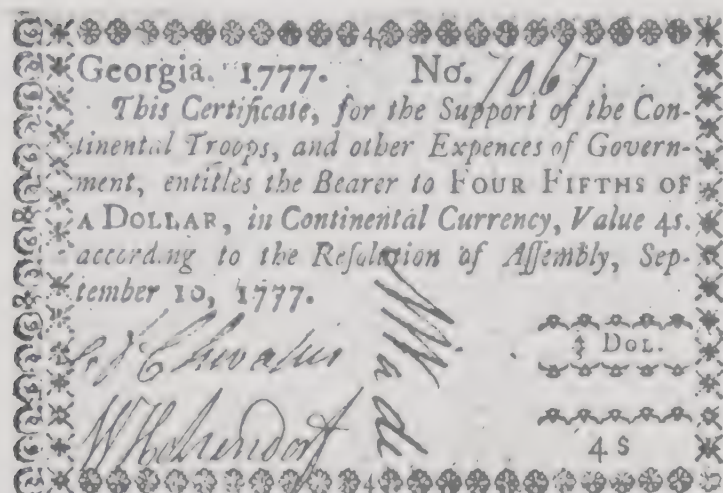 4
Georgia. 1777. No. 7067
This Certificate, for the Support of the Con-
tinental Troops, and other Expences of Govern-
ment, entitles the Bearer to FOUR FIFTHS OF
A DOLLAR, in Continental Currency, Value 4s.
according to the Reſolution of Aſſembly, Sep-
tember 10, 1777.
N Wade
⅘ DOL.
4 S
4